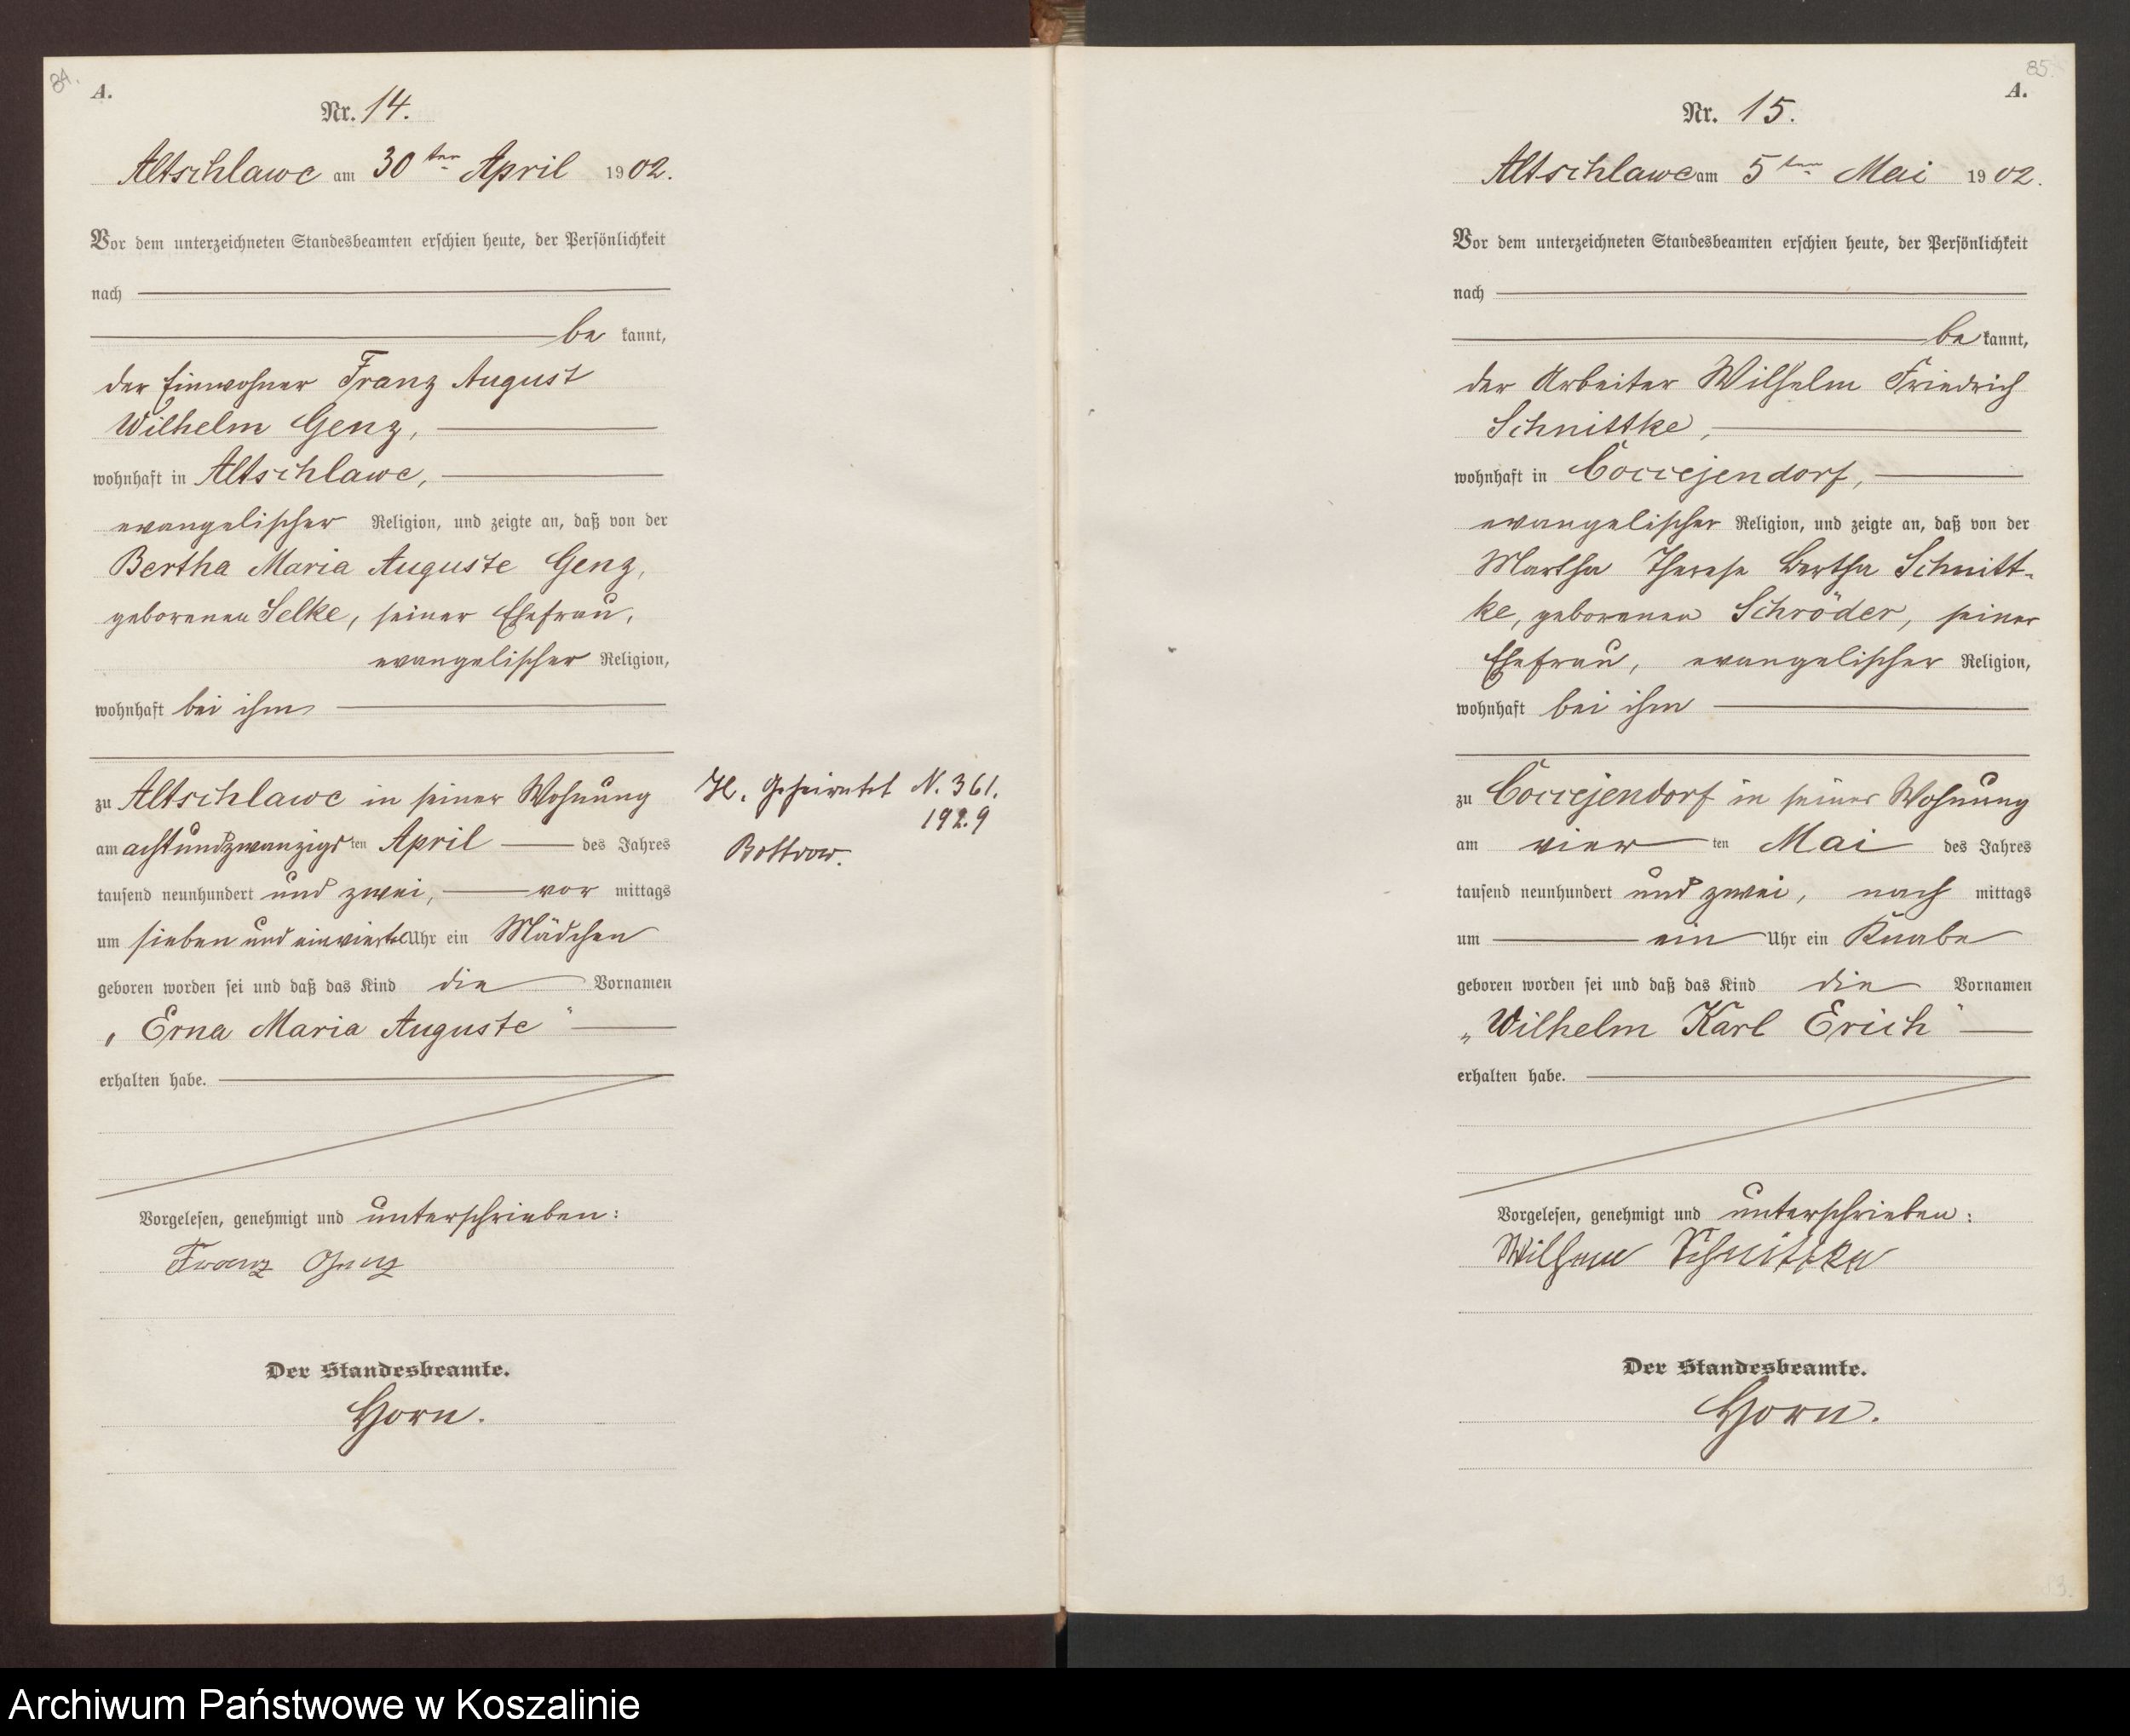 84.
A.
Nr. 14.
Altschlawe am 30ten April 1902.
Vor dem unterzeichneten Standesbeamten erschien heute, der Persönlichkeit
nach
be kannt,
der Einwohner Franz August
Wilhelm Genz,
wohnhaft in Altschlawe,
evangelischer Religion, und zeigte an, daß von der
Bertha Maria Auguste Genz,
geborenen Selke, seiner Ehefrau,
evangelischer Religion,
wohnhaft bei ihm
zu Altschlawe in seiner Wohnung
am achtundzwanzigsten April des Jahres
tausend neunhundert und zwei, vor mittags
um sieben und einviertel Uhr ein Mädchen
geboren worden sei und daß das Kind die Vornamen
„Erna Maria Auguste“
erhalten habe.
Vorgelesen, genehmigt und unterschrieben:
Franz Genz
Der Standesbeamte.
Horn.
H. Geheiratet N. 361.
1929
Bottrow.
85.
A.
Nr. 15.
Altschlawe am 5ten Mai 1902.
Vor dem unterzeichneten Standesbeamten erschien heute, der Persönlichkeit
nach
be kannt,
der Arbeiter Wilhelm Friedrich
Schnittke,
wohnhaft in Coccejendorf,
evangelischer Religion, und zeigte an, daß von der
Martha Therese Bertha Schnitt-
ke, geborenen Schröder, seiner
Ehefrau, evangelischer Religion,
wohnhaft bei ihm
zu Coccejendorf in seiner Wohnung
am vier ten Mai des Jahres
tausend neunhundert und zwei, nach mittags
um ein Uhr ein Knabe
geboren worden sei und daß das Kind die Vornamen
„Wilhelm Karl Erich“
erhalten habe.
Vorgelesen, genehmigt und unterschrieben:
Wilhelm Schnittke
Der Standesbeamte.
Horn.
Archiwum Państwowe w Koszalinie